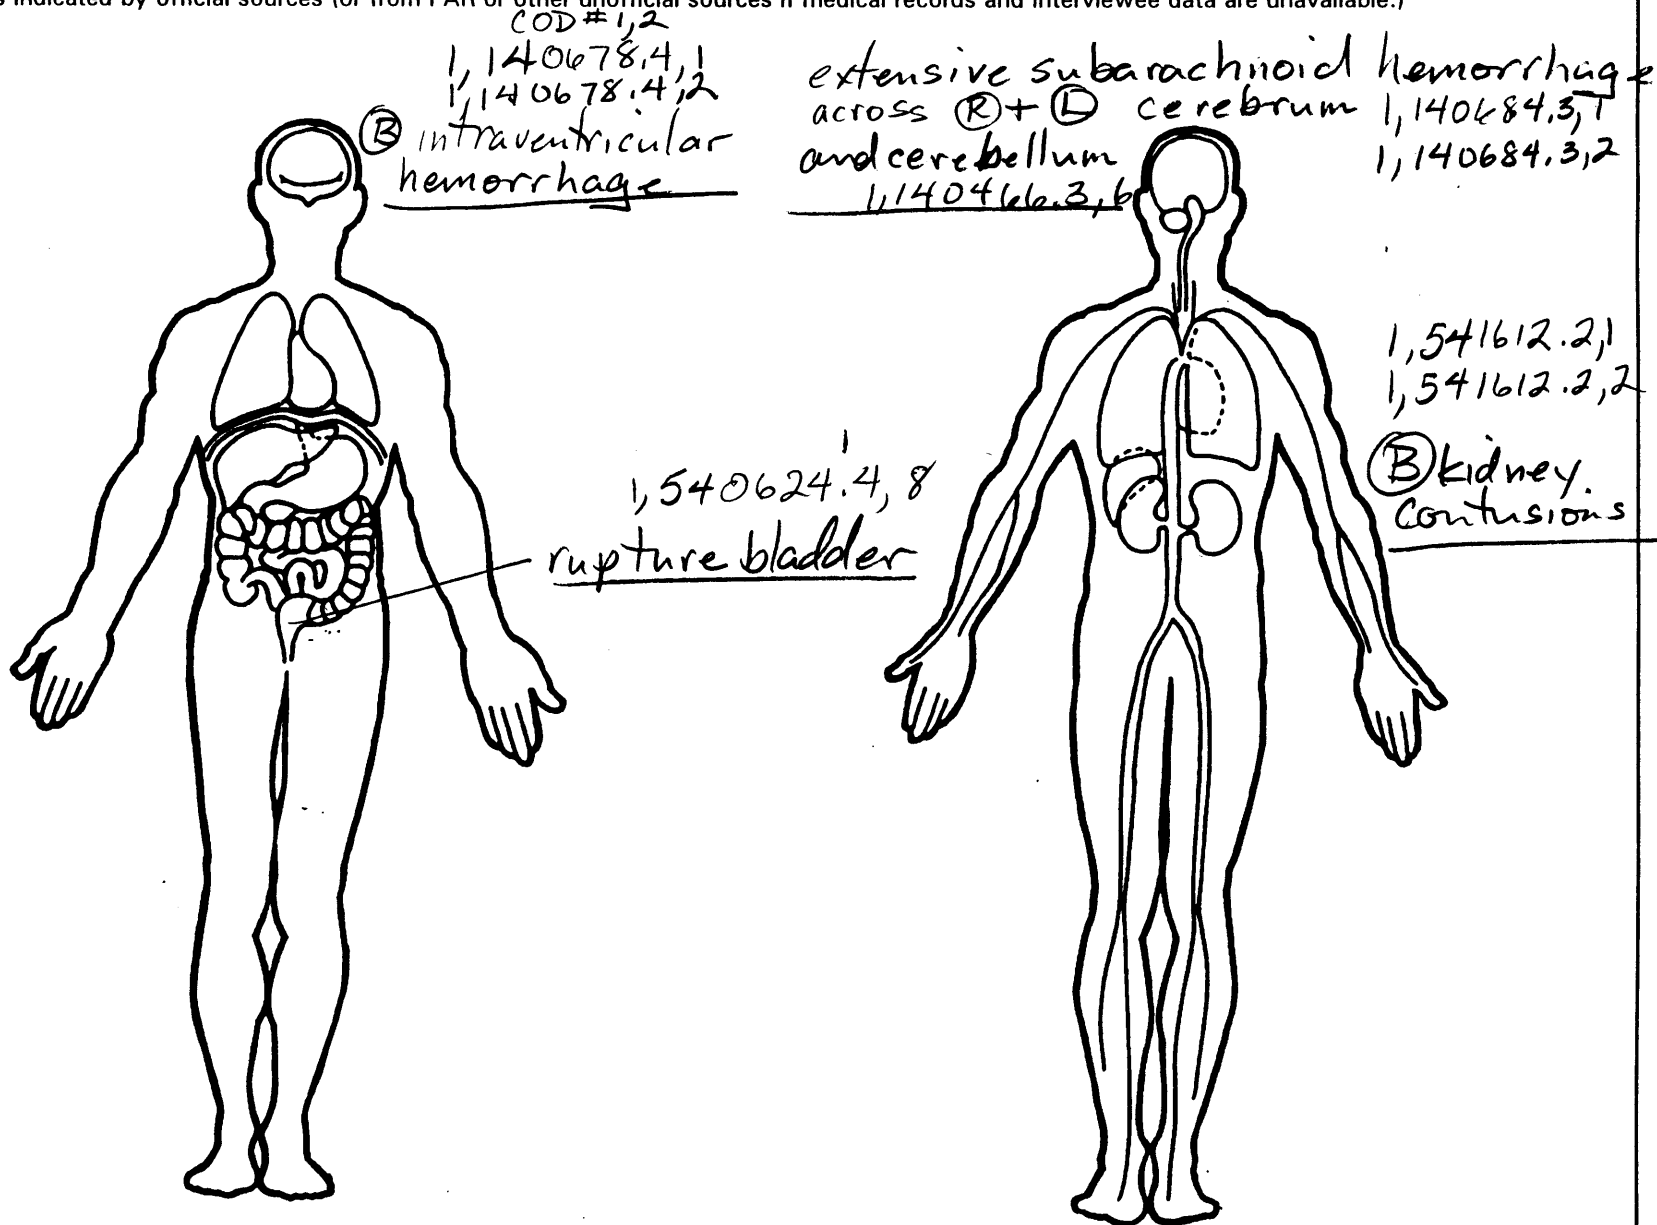 s indicated by official sources (or from PAR or other unofficial sources if medical records and interviewee data are unavailable.)
COD # 1,2
1, 140678.4,1
1, 140678.4,2
Ⓑ intraventricular
hemorrhage
extensive subarachnoid hemorrhage
across Ⓡ + Ⓛ cerebrum 1,140684.3,1
and cerebellum 1,140684.3,2
1,140466.3,6
1,541612.2,1
1,541612.2,2
Ⓑ kidney
contusions
1,540624.4, 8
rupture bladder